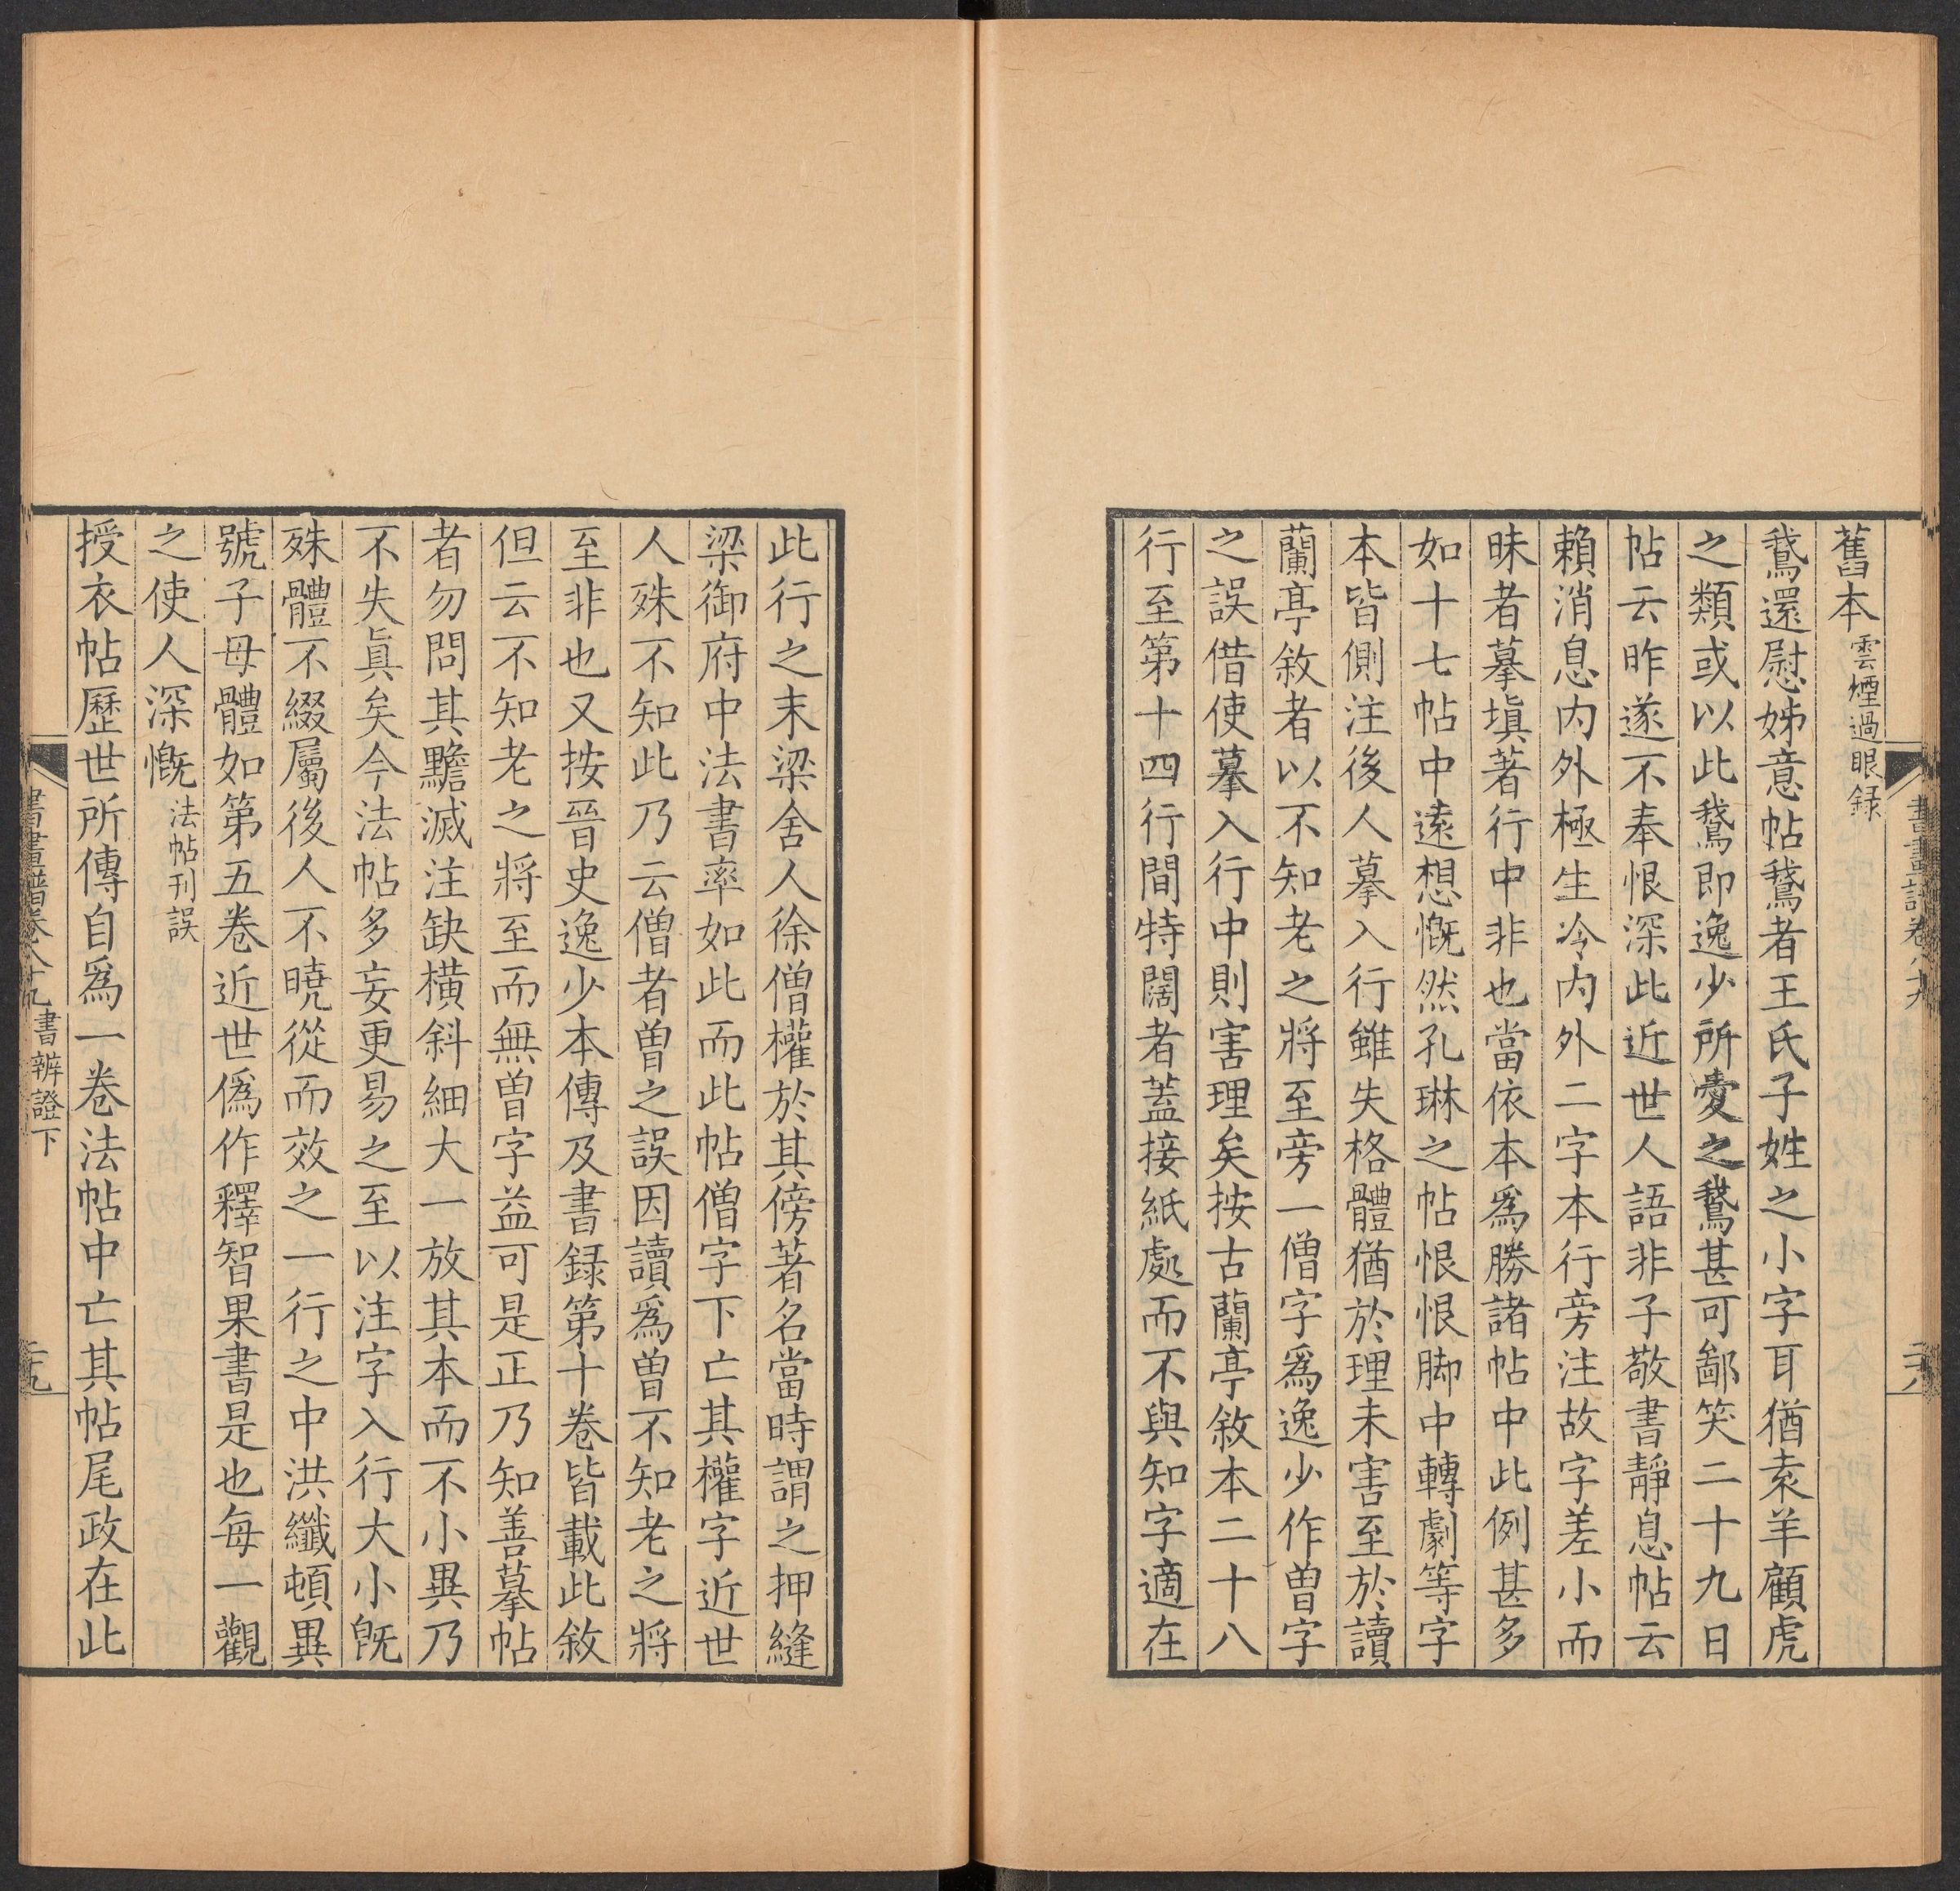 書畫譜卷八十九
二十八
舊本雲煙過眼録
鵞還慰姊意帖鵞者王氏子姓之小字耳猶袁羊顧虎
之類或以此鵞即逸少所愛之鵞甚可鄙笑二十九日
帖云昨遂不奉恨深此近世人語非子敬書靜息帖云
賴消息内外極生冷内外二字本行旁注故字差小而
昧者摹塡著行中非也當依本爲勝諸帖中此例甚多
如十七帖中遠想慨然孔琳之帖恨恨脚中轉劇等字
本皆側注後人摹入行雖失格體猶於理未害至於讀
蘭亭敘者以不知老之將至旁一僧字爲逸少作曽字
之誤借使摹入行中則害理矣按古蘭亭敘本二十八
行至第十四行間特闊者蓋接紙處而不與知字適在
此行之末梁舍人徐僧權於其傍著名當時謂之押縫
梁御府中法書率如此而此帖僧字下亡其權字近世
人殊不知此乃云僧者曽之誤因讀爲曽不知老之將
至非也又按晉史逸少本傳及書録第十卷皆載此敘
但云不知老之將至而無曽字益可是正乃知善摹帖
者勿問其黵滅注缺橫斜細大一放其本而不小異乃
不失眞矣今法帖多妄更易之至以注字入行大小旣
殊體不綴屬後人不曉從而效之一行之中洪纖頓異
號子母體如第五卷近世僞作釋智果書是也每一觀
之使人深慨法帖刊誤
授衣帖歷世所傳自爲一卷法帖中亡其帖尾政在此
書畫譜卷八十九書辨證下
二十九